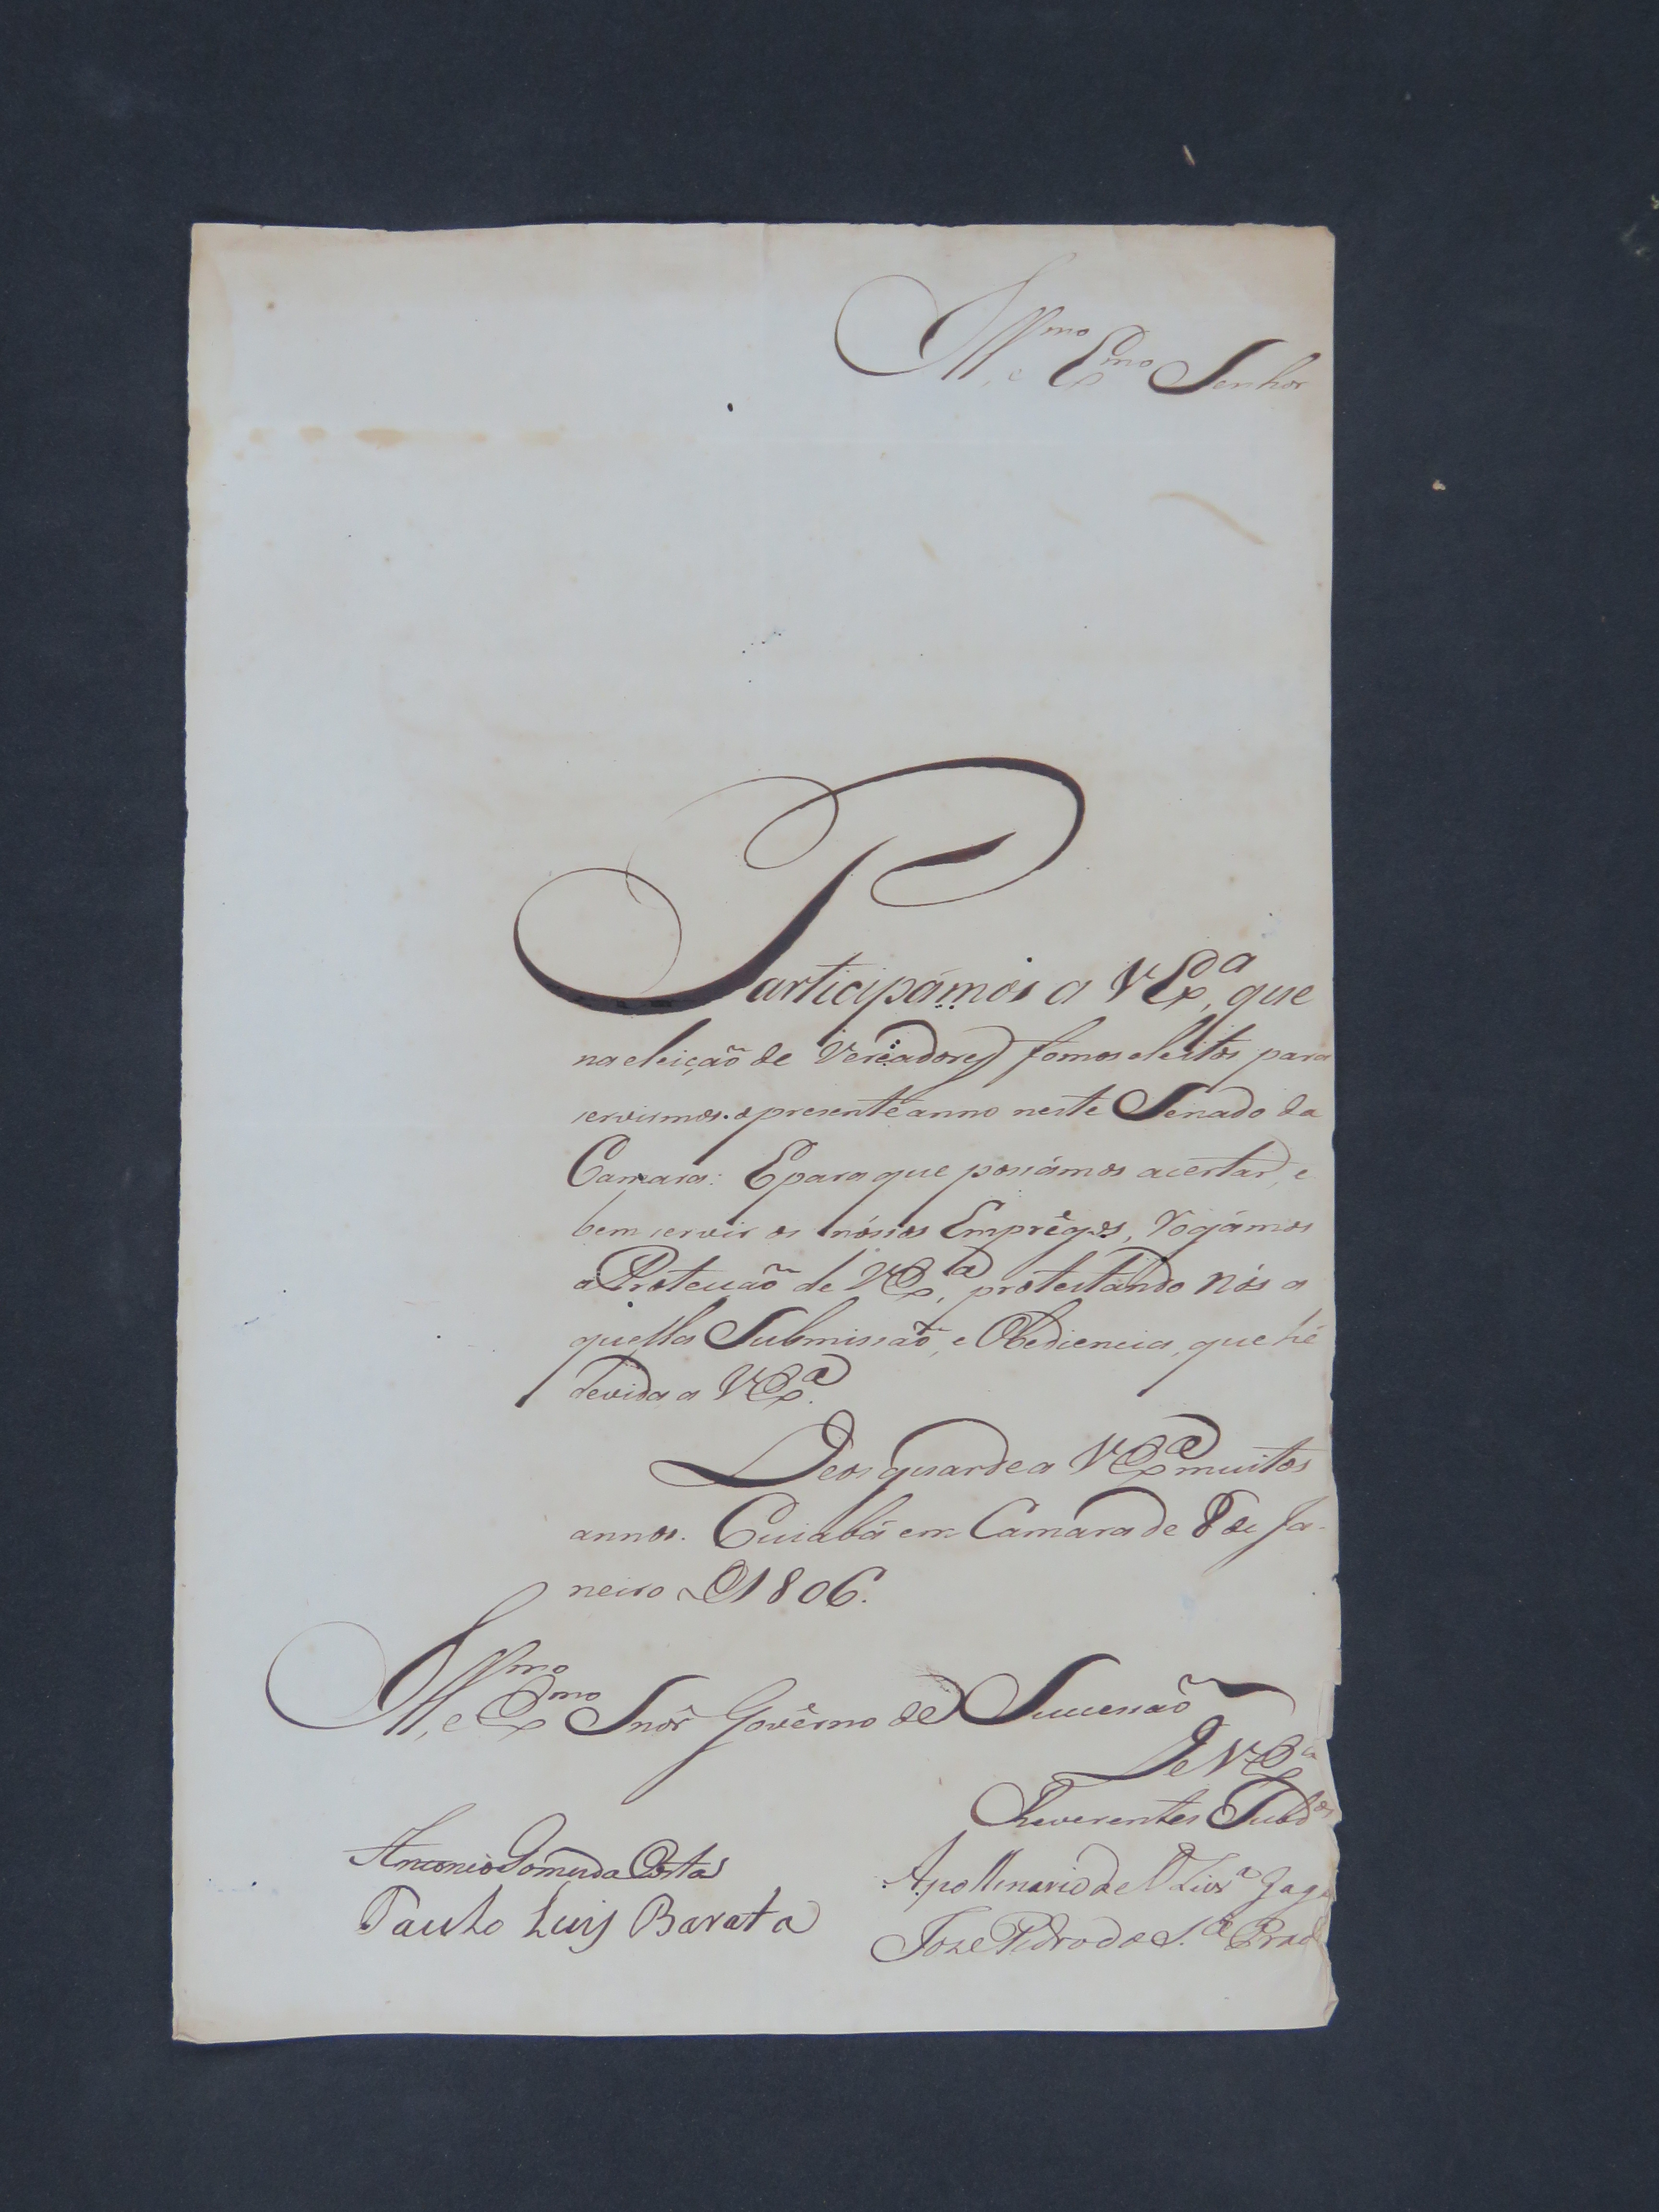 Ill.mo, e Ex.mo Senhor
Participámos a V Ex.a, que
na eleição de Vereadores fomos eleitos para
servirmos o presente anno neste Senado da
Camara: E para que possámos acertar, e
bem servir os nóssos Emprêgos, rogámos
a Protecção de V Ex.a, protestando nós a
quella Submissaõ, e Obediencia, que hé
devida a V Ex.a.
Deos guarde a V Ex.a muitos
annos. Cuiabá em Camara de 8 de Ja-
neiro de 1806.
Ill.mo, e Ex.mo Snõr Govêrno de Sucessaõ
De V Ex.a
Reverentes Subd.os
Antonio Gomes da Costa
Apollinario de Oliv.a
Paulo Luis Barata
Joze Pedro da S.a Prad